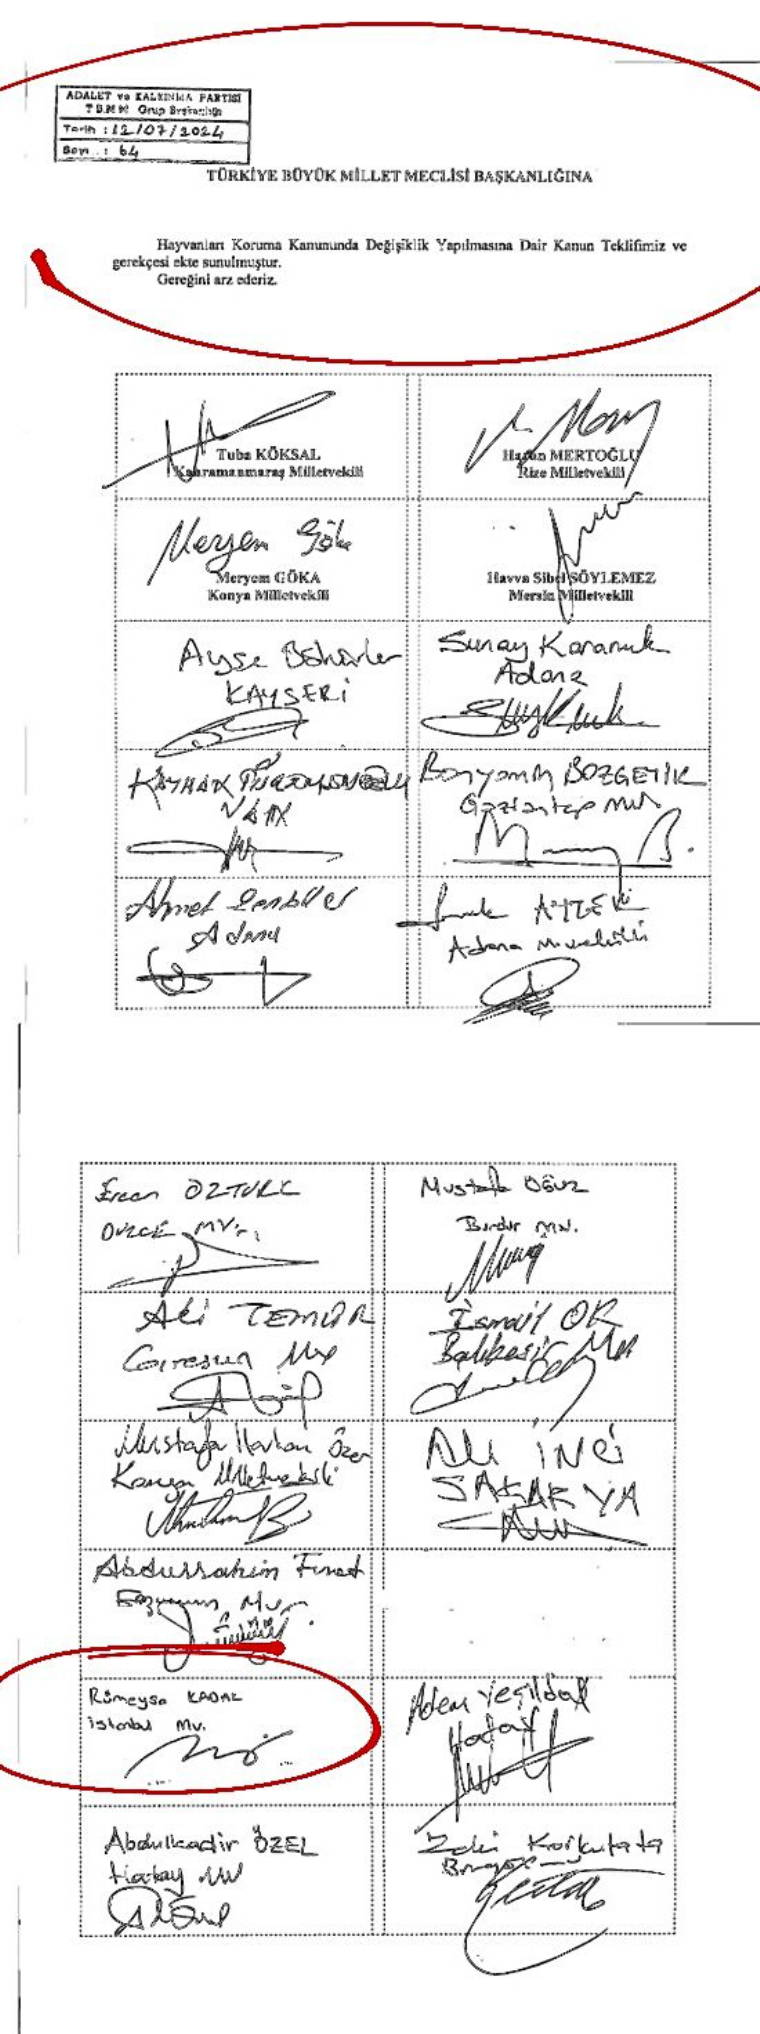 ADALET ve KALKINMA PARTİSİ
T.B.M.M. Grup Başkanlığı
Tarih : 12/07/2024
Sayı : 64
TÜRKİYE BÜYÜK MİLLET MECLİSİ BAŞKANLIĞINA
Hayvanları Koruma Kanununda Değişiklik Yapılmasına Dair Kanun Teklifimiz ve
gerekçesi ekte sunulmuştur.
Gereğini arz ederiz.
Tuba KÖKSAL
Kahramanmaraş Milletvekili
Harun MERTOĞLU
Rize Milletvekili
Meryem Göka
Meryem GÖKA
Konya Milletvekili
Havva Sibel SÖYLEMEZ
Mersin Milletvekili
Ayşe Böhürler
KAYSERİ
Sunay Karamık
Adana
VAN
BOZGEYİK
Gaziantep
Ahmet
Adana
AYTEK
Adana
Ercan ÖZTÜRK
DÜZCE MV.
Mustafa OĞUZ
Burdur MV.
Ali TEMÜR
Giresun
İsmail OK
Balıkesir
Mustafa Hakan Özer
Konya Milletvekili
Ali İNCİ
SAKARYA
Abdurrahim Fırat
Erzurum
Rümeysa KADAK
İstanbul MV.
Adem Yeşildal
Hatay
Abdulkadir ÖZEL
Hatay MV
Zeki Korkutata